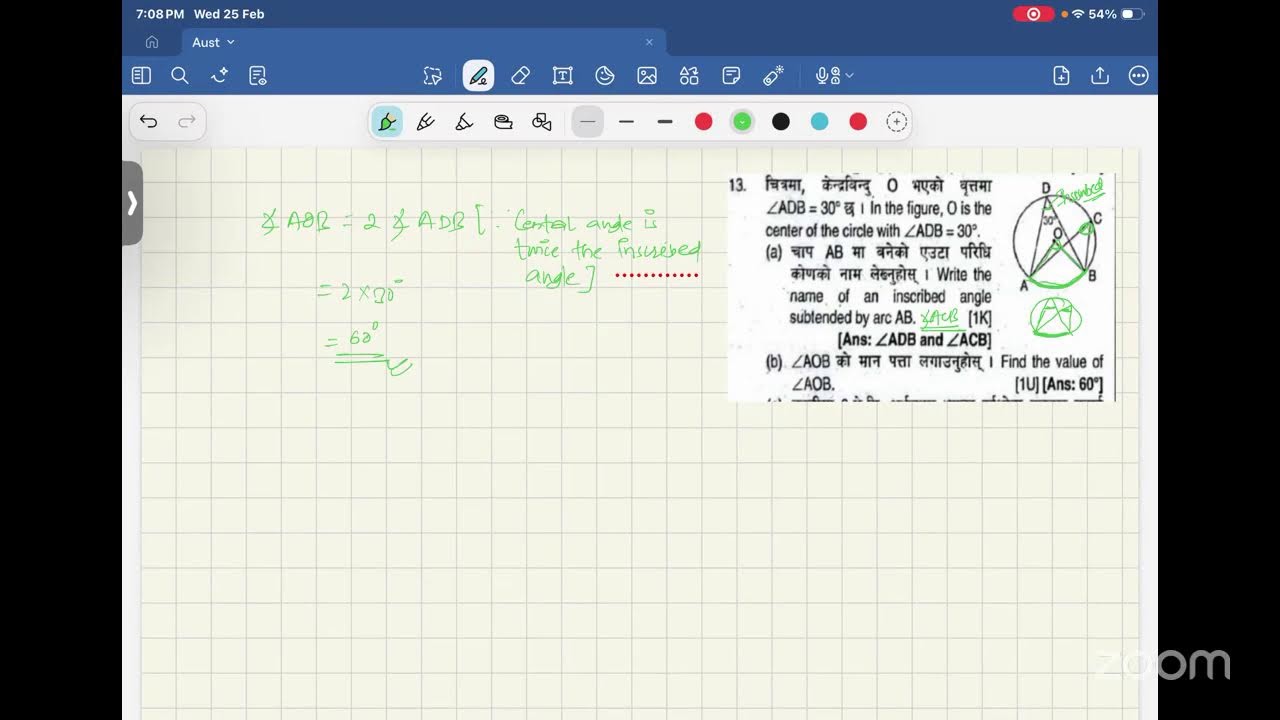 7:08 PM Wed 25 Feb
54%
Aust
∡ AOB = 2 ∡ ADB [∵ Central angle is
twice the Inscribed
angle]
= 2 × 30°
= 60°
13. चित्रमा, केन्द्रविन्दु O भएको वृत्तमा
∠ADB = 30° छ । In the figure, O is the
center of the circle with ∠ADB = 30°.
(a) चाप AB मा बनेको एउटा परिधि
कोणको नाम लेख्नुहोस् । Write the
name of an inscribed angle
subtended by arc AB. ∡ACB [1K]
[Ans: ∠ADB and ∠ACB]
(b) ∠AOB को मान पत्ता लगाउनुहोस् । Find the value of
∠AOB. [1U] [Ans: 60°]
D
Inscribed
30°
C
O
A
B
zoom